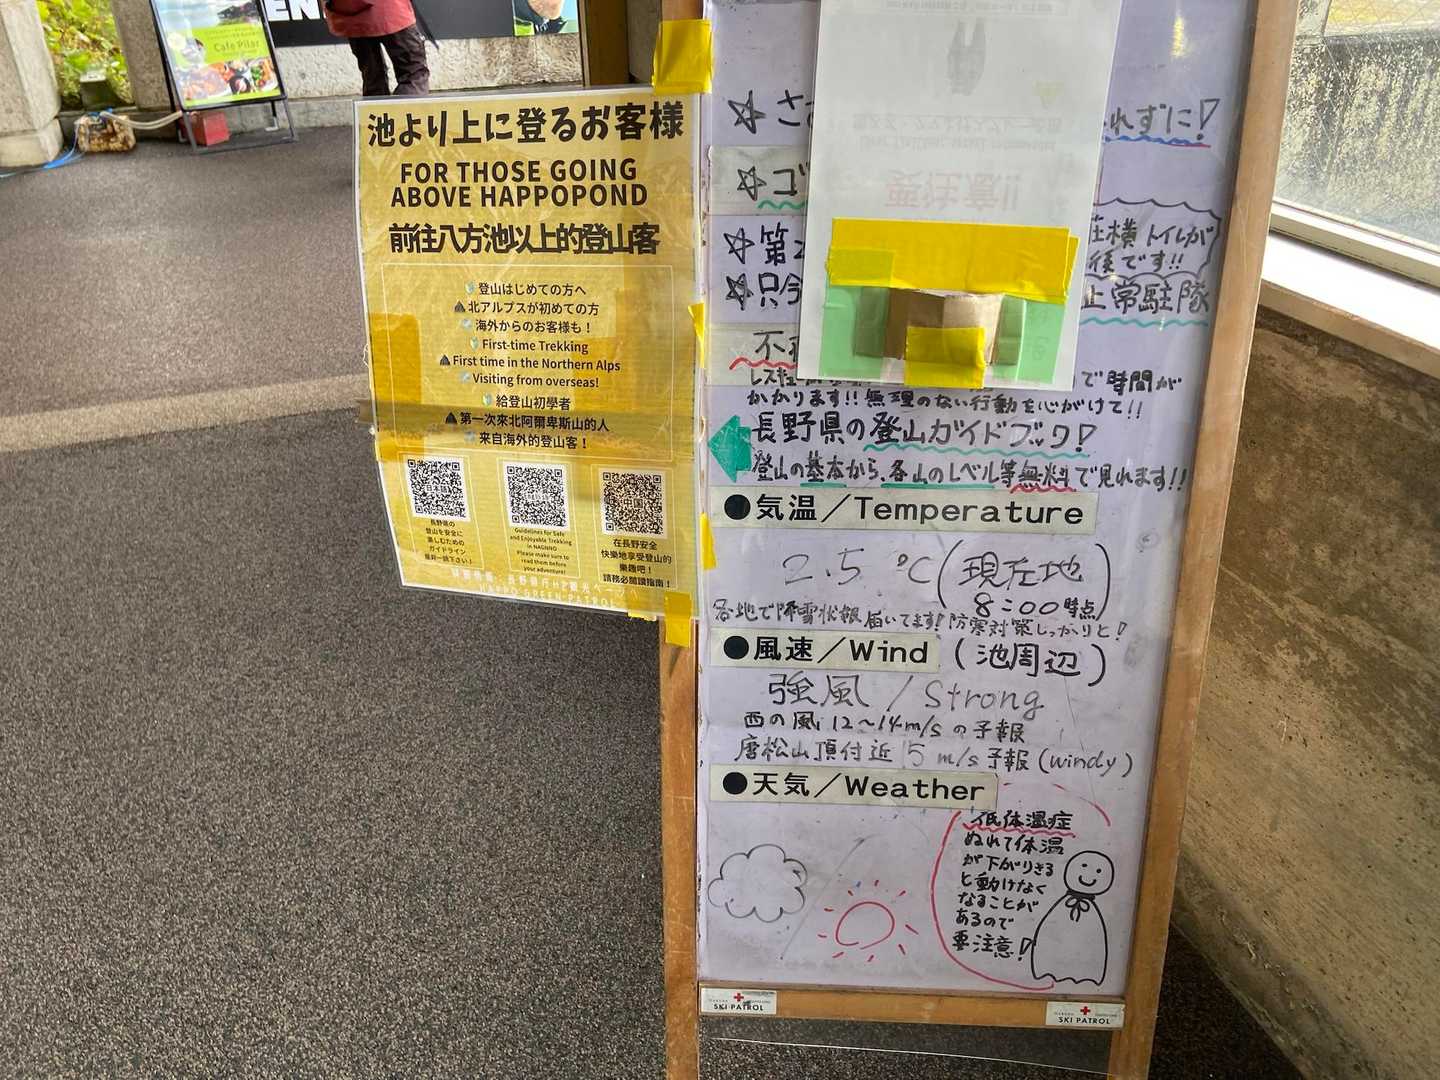 Cafe Pilar
EN
池より上に登るお客様
FOR THOSE GOING
ABOVE HAPPOPOND
前往八方池以上的登山客
登山はじめての方へ
北アルプスが初めての方
海外からのお客様も！
First-time Trekking
First time in the Northern Alps
Visiting from overseas!
給登山初學者
第一次來北阿爾卑斯山的人
来自海外的登山客！
日本語
中国
長野県の
登山を安全に
楽しむための
ガイドライン
Guidelines for Safe
and Enjoyable Trekking
in NAGANO
Please make sure to
read them before
your adventure!
在長野安全
快樂地享受登山的
樂趣吧！
請務必閲讀指南！
HAPPO GREEN PATROL
☆さ
れずに！
☆ゴ
☆第
荘横トイレが
後です!!
☆只今
上常駐隊
要注意!!
で時間が
かかります!!無理のない行動を心がけて!!
長野県の登山ガイドブック！
登山の基本から、各山のレベル等無料で見れます!!
●気温／Temperature
2.5 ℃(現在地
8:00時点)
各地で降雪状報届いてます！防寒対策しっかりと！
●風速／Wind (池周辺)
強風 / Strong
西の風 12～14m/s の予報
唐松山頂付近 15 m/s 予報 (windy)
●天気／Weather
低体温症
ぬれて体温
が下がりすぎる
と動けなく
なることが
あるので
要注意！
SKI PATROL
SKI PATROL